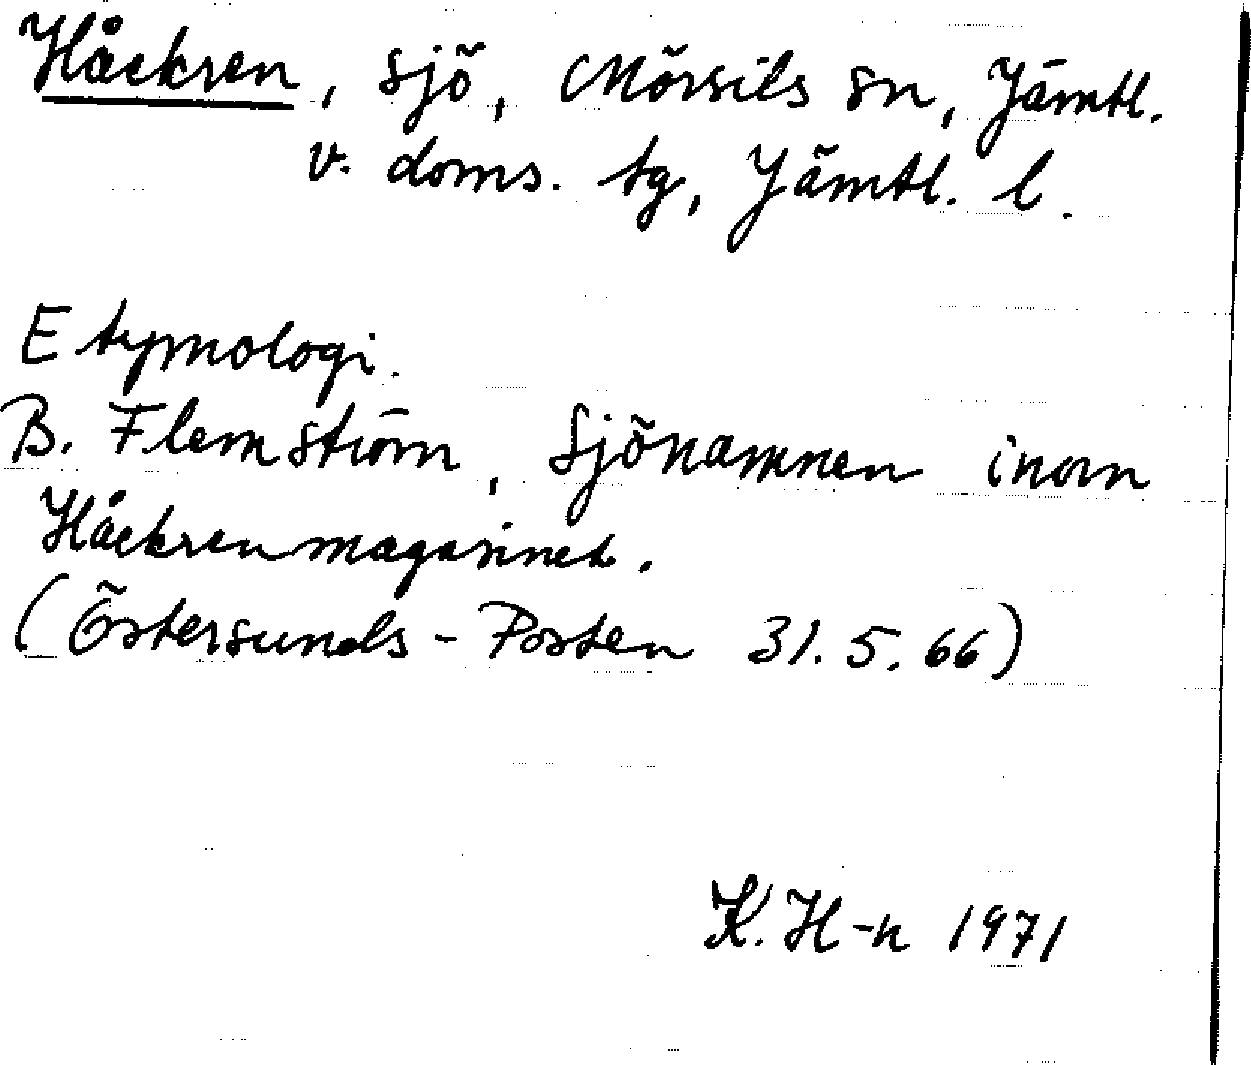 Håckren, sjö, Mörsils sn, Jämtl.
v. doms. tg, Jämtl. l.
Etymologi.
B. Flemström, Sjönamnen inom
Håckrenmagasinet.
(Östersunds-Posten 31.5.66)
K. H-n 1971